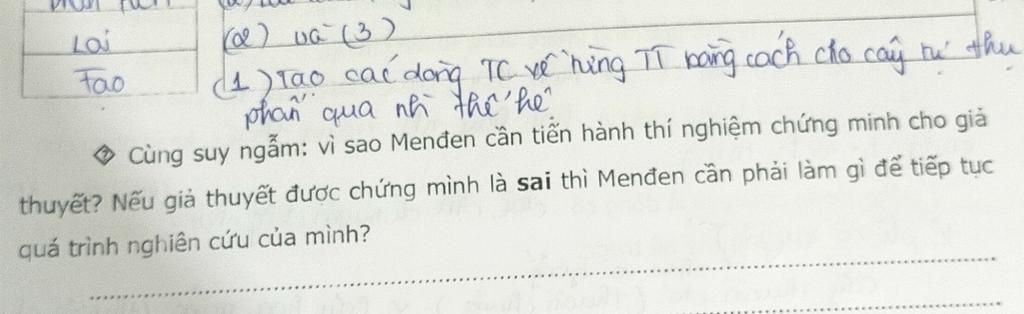 Lai
(2) và (3)
Tạo
(1) Tạo các dòng TC về từng TT bằng cách cho cây tự thụ
phấn qua nh thế hệ
Cùng suy ngẫm: vì sao Menđen cần tiến hành thí nghiệm chứng minh cho giả
thuyết? Nếu giả thuyết được chứng mình là sai thì Menđen cần phải làm gì để tiếp tục
quá trình nghiên cứu của mình?